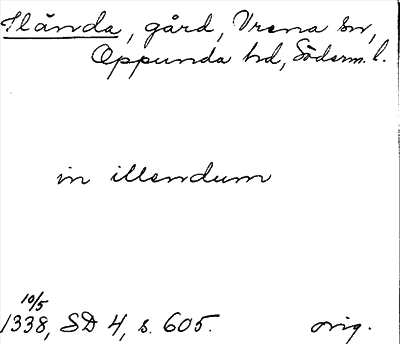 Ilända, gård, Vrena sn,
Oppunda hd, Söderm. l.
in illendum
10/5
1338, SD 4, s. 605. orig.